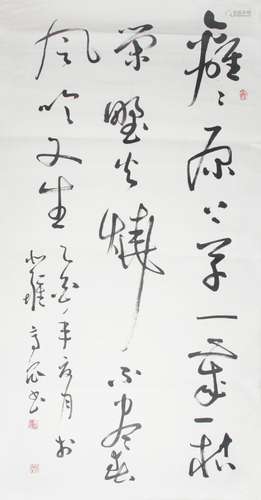 離〻原上草一歲一枯
榮野火燒不盡春
風吹又生
乙酉年月於
書